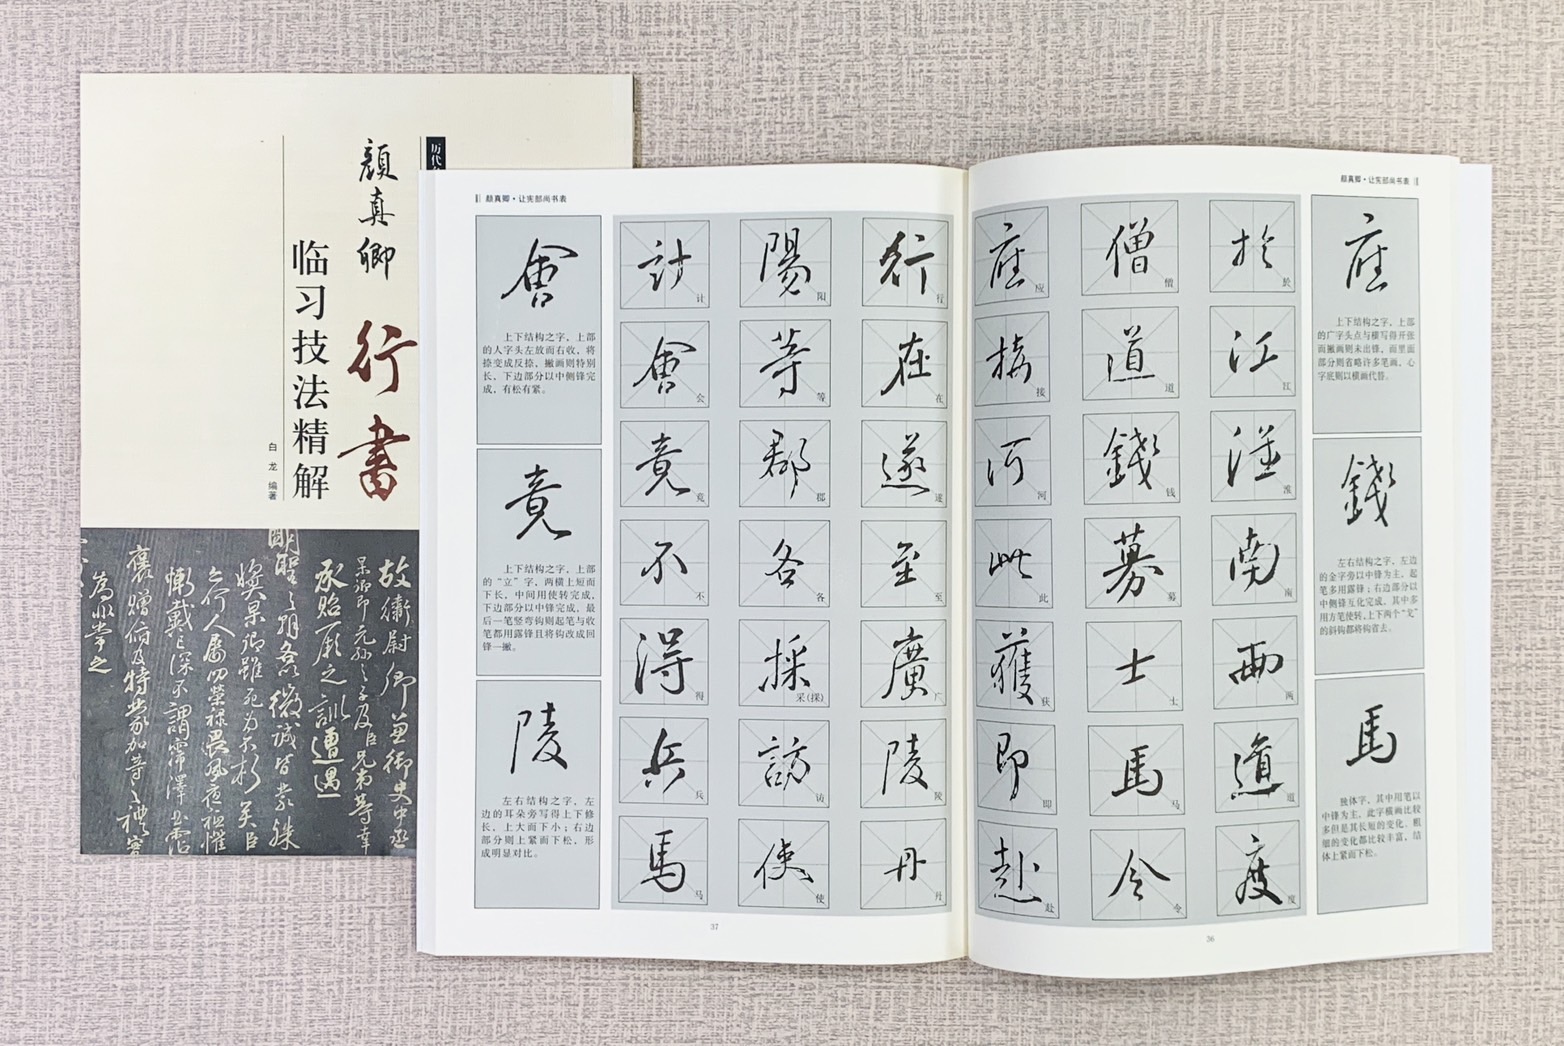 历代
顔真卿
行書
临习技法精解
白龙 编著
故衛尉卿兼御史中丞
杲卿即元孫之子及臣兄弟等幸
承貽厥之訓遭遇
明聖之朝各以微誠皆蒙殊
獎杲卿雖死為不朽矣臣
之何人屡叨榮禄畏風夜祖惟
慚戴之深不謂霈澤
褒贈俯及特蒙加等之禮
為永業之
颜真卿·让宪部尚书表
會
上下结构之字，上部
的人字头左放而右收，将
捺变成反捺，撇画则特别
长，下边部分以中侧锋完
成，有松有紧。
竟
上下结构之字，上部
的“立”字，两横上短而
下长，中间用使转完成，
下边部分以中锋完成，最
后一笔竖弯钩则起笔与收
笔都用露锋且将钩改成回
锋一撇。
陵
左右结构之字，左
边的耳朵旁写得上下修
长，上大而下小；右边
部分则上紧而下松，形
成明显对比。
計 计 陽 阳 行 行
會 会 等 等 在 在
竟 竟 郡 郡 遂 遂
不 不 各 各 至 至
得 得 採 采(採) 廣 广
兵 兵 訪 访 陵 陵
馬 马 使 使 丹 丹
37
颜真卿·让宪部尚书表
應 应 僧 僧 於 於
接 接 道 道 江 江
河 河 錢 钱 淮 淮
此 此 募 募 南 南
獲 获 士 士 兩 两
即 即 馬 马 道 道
赴 赴 令 令 度 度
應
上下结构之字，上部
的广字头点与横写得开张
而撇画则未出锋，而里面
部分则省略许多笔画，心
字底则以横画代替。
錢
左右结构之字，左边
的金字旁以中锋为主，起
笔多用露锋；右边部分以
中侧锋互化完成，其中多
用方笔使转，上下两个“戈”
的斜钩都将钩省去。
馬
独体字，其中用笔以
中锋为主，此字横画比较
多但是其长短的变化、粗
细的变化都比较丰富，结
体上紧而下松。
36